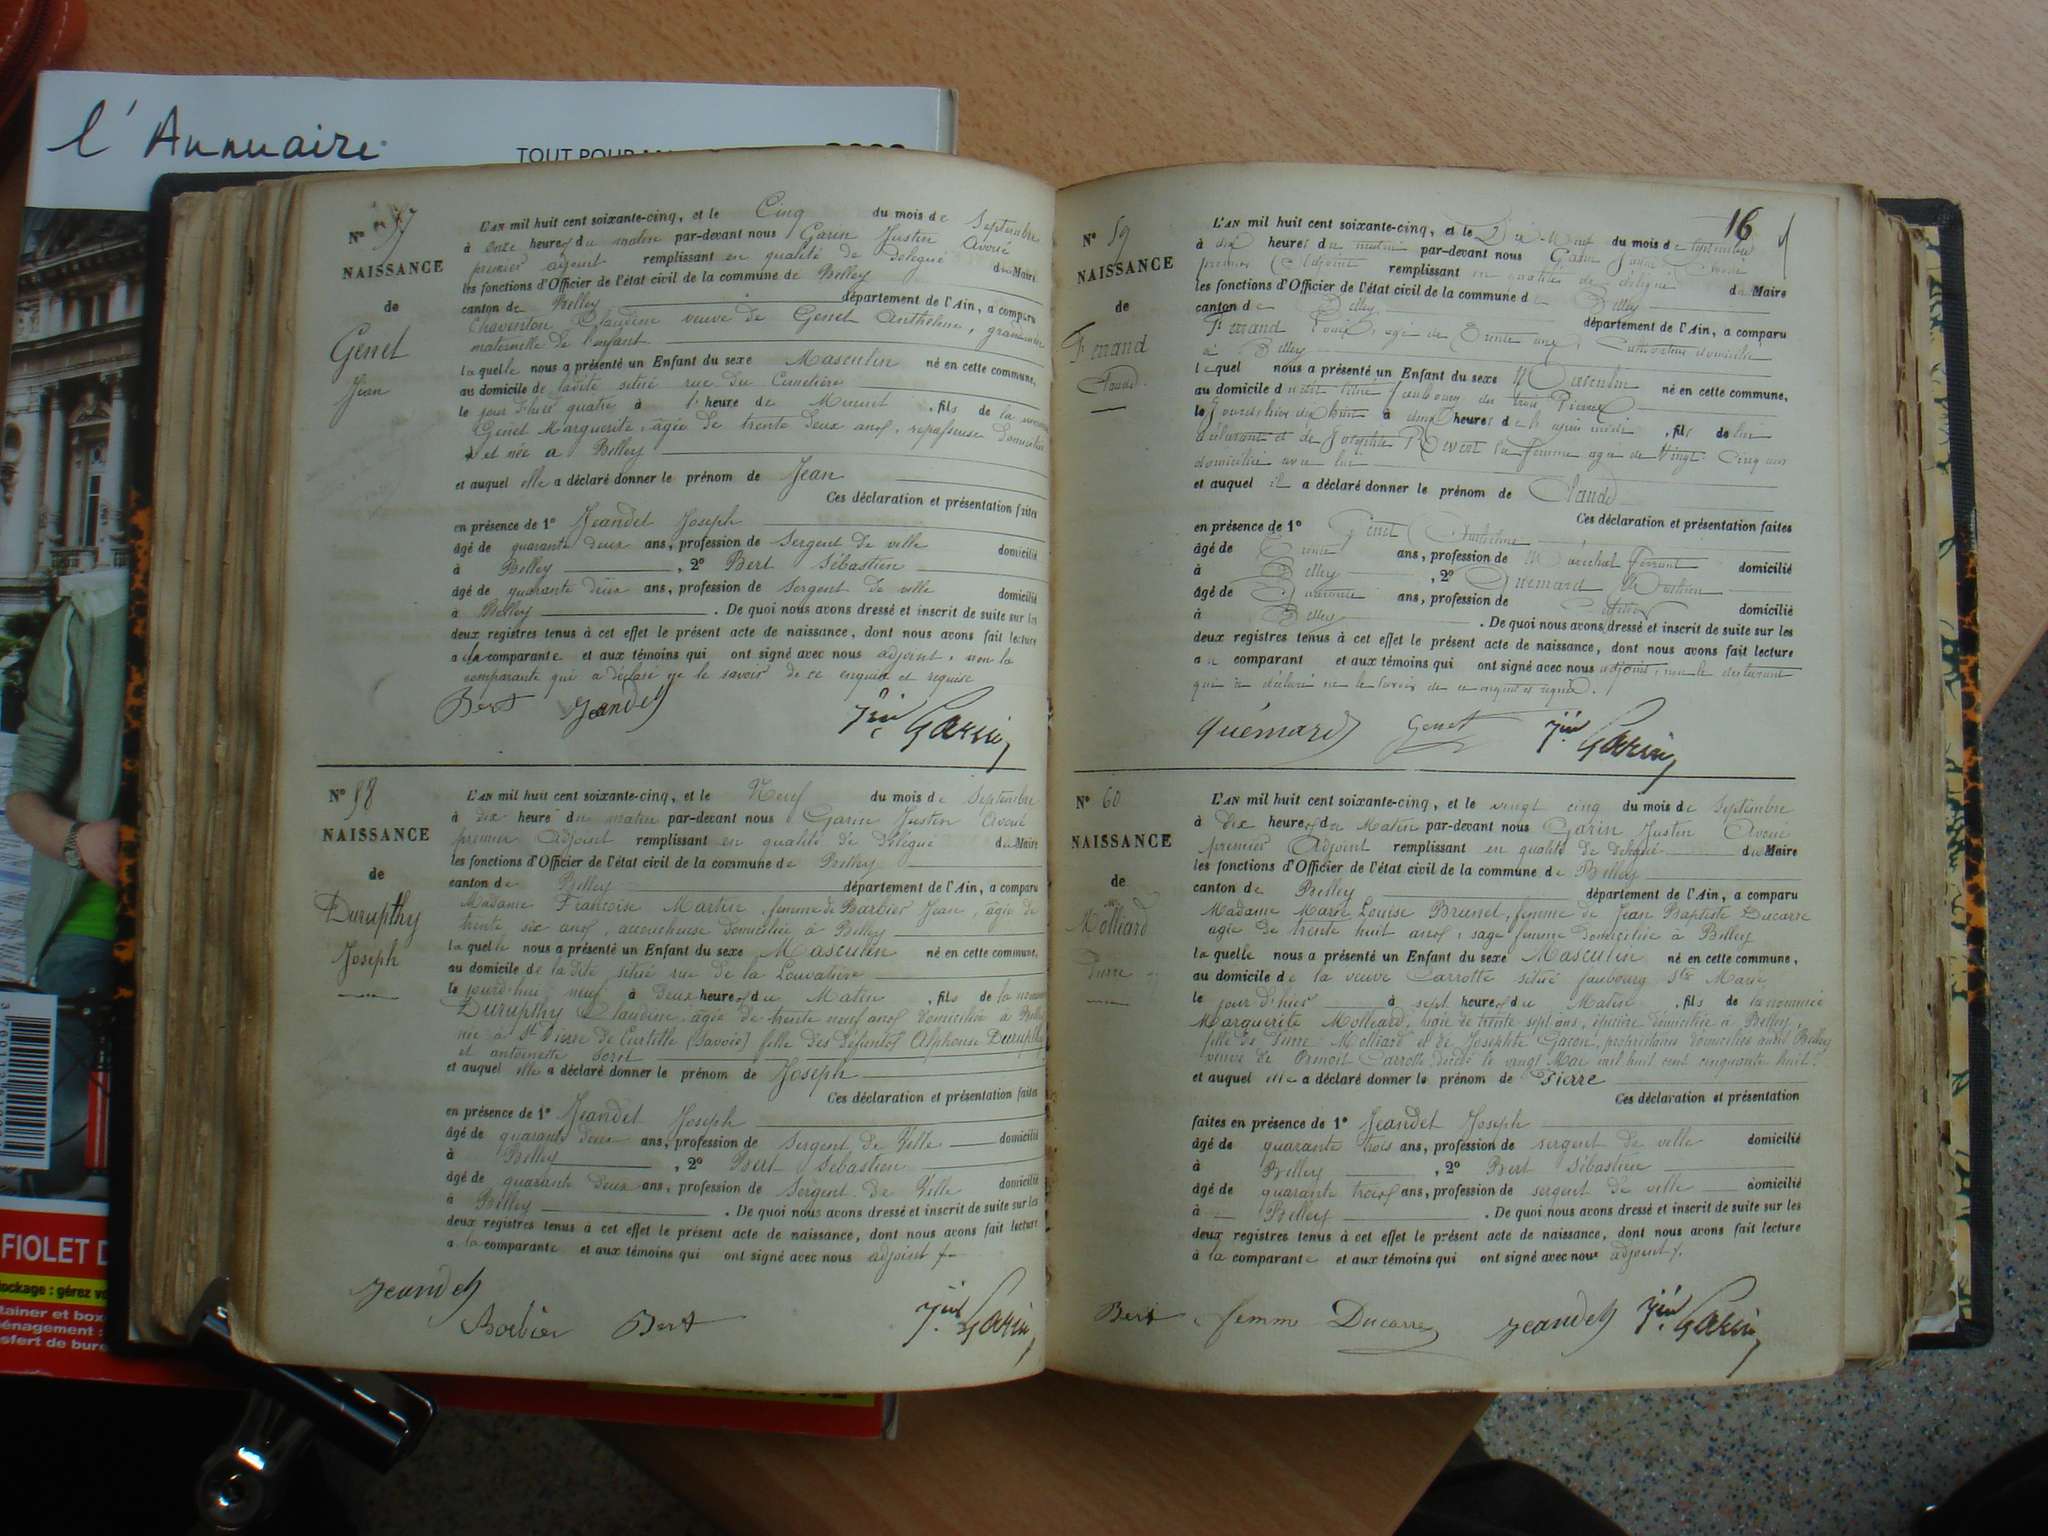 l'Annuaire
TOUT POUR
N° 57
NAISSANCE
de
Genet
Jean
L'AN mil huit cent soixante-cinq, et le Cinq du mois de Septembre
à onze heures du matin par-devant nous Garin Justin Avoué
premier adjoint remplissant en qualité de délégué du Maire
les fonctions d'Officier de l'état civil de la commune de Belley
canton de Belley département de l'Ain, a comparu
Claudine veuve de Genet Anthelme, grand'mère
maternelle de l'enfant
laquelle nous a présenté un Enfant du sexe Masculin né en cette commune,
au domicile de ladite situé rue du Cimetière
le jour d'hier quatre à l'heure de Minuit, fils de la nommée
Genet Marguerite, âgée de trente deux ans, repasseuse domiciliée
et née a Belley
et auquel elle a déclaré donner le prénom de Jean
Ces déclaration et présentation faites
en présence de 1° Jeandet Joseph
âgé de quarante deux ans, profession de Sergent de ville domicilié
à Belley, 2° Bert Sébastien
âgé de quarante deux ans, profession de Sergent de ville domicilié
à Belley. De quoi nous avons dressé et inscrit de suite sur les
deux registres tenus à cet effet le présent acte de naissance, dont nous avons fait lecture
a la comparante et aux témoins qui ont signé avec nous adjoint, non la
comparante qui a déclaré ne le savoir de ce enquise et requise
Bert Jeandet Jin Garin
N° 58
NAISSANCE
de
Durupthy
Joseph
L'AN mil huit cent soixante-cinq, et le Neuf du mois de Septembre
à dix heure du matin par-devant nous Garin Justin Avoué
premier Adjoint remplissant en qualité de délégué du Maire
les fonctions d'Officier de l'état civil de la commune de Belley
canton de Belley département de l'Ain, a comparu
Madame Françoise Martin, femme de Barbier Jean, âgée de
trente six ans, accoucheuse domiciliée à Belley
laquelle nous a présenté un Enfant du sexe Masculin né en cette commune,
au domicile de la dite située rue de la Louvatière
le jourd'hui neuf à deux heures du Matin, fils de la nommée
Durupthy Claudine, âgée de trente neuf ans domiciliée à Belley
née à St Pierre de Curtille (Savoie) fille des défunts Alphonse Durupthy
et antoinette
et auquel elle a déclaré donner le prénom de Joseph
Ces déclaration et présentation faites
en présence de 1° Jeandet Joseph
âgé de quarante deux ans, profession de Sergent de Ville domicilié
à Belley, 2° Bert Sébastien
âgé de quarante deux ans, profession de Sergent de Ville domicilié
à Belley. De quoi nous avons dressé et inscrit de suite sur les
deux registres tenus à cet effet le présent acte de naissance, dont nous avons fait lecture
a la comparante et aux témoins qui ont signé avec nous adjoint
Jeandet
Barbier Bert Jin Garin
16
N° 59
NAISSANCE
de
Claude
L'AN mil huit cent soixante-cinq, et le Dix-Neuf du mois de Septembre
à dix heures du matin par-devant nous Garin Justin Avoué
premier Adjoint remplissant en qualité de délégué du Maire
les fonctions d'Officier de l'état civil de la commune de Belley
canton de Belley département de l'Ain, a comparu
Louis, agé de Trente ans, Cultivateur domicilié
à Belley
lequel nous a présenté un Enfant du sexe Masculin né en cette commune,
au domicile dudit situé faubourg des trois Pierres
le jour d'hier dix huit à cinq heures de l'après midi, fils de lui
déclarant et de Josephte sa femme agée de Vingt Cinq ans
domiciliée avec lui
et auquel il a déclaré donner le prénom de Claude
Ces déclaration et présentation faites
en présence de 1° Genet Anthelme
âgé de Trente ans, profession de Maréchal Ferrant domicilié
à Belley, 2° Quémard
âgé de Quarante ans, profession de domicilié
à Belley. De quoi nous avons dressé et inscrit de suite sur les
deux registres tenus à cet effet le présent acte de naissance, dont nous avons fait lecture
au comparant et aux témoins qui ont signé avec nous adjoint, non le déclarant
qui a déclaré ne le savoir de ce enquis et requis.
Quémard Genet Jin Garin
N° 60
NAISSANCE
de
Molliard
Pierre
L'AN mil huit cent soixante-cinq, et le vingt cinq du mois de Septembre
à dix heures du Matin par-devant nous Garin Justin Avoué
premier Adjoint remplissant en qualité de délégué du Maire
les fonctions d'Officier de l'état civil de la commune de Belley
canton de Belley département de l'Ain, a comparu
Madame Marie Louise Brunet, femme de Jean Baptiste Ducarre
agée de trente huit ans, sage femme domiciliée à Belley
laquelle nous a présenté un Enfant du sexe Masculin né en cette commune,
au domicile de la veuve Carrotte situé faubourg Ste Marie
le jour d'hier à sept heures du Matin, fils de la nommée
Marguerite Molliard, agée de trente sept ans, domiciliée à Belley,
fille de Pierre Molliard et de Josephte Gacon, propriétaires domiciliés audit Belley
veuve de Carrotte décédé le vingt Mai mil huit cent cinquante huit.
et auquel elle a déclaré donner le prénom de Pierre
Ces déclaration et présentation
faites en présence de 1° Jeandet Joseph
âgé de quarante trois ans, profession de sergent de ville domicilié
à Belley, 2° Bert Sébastien
âgé de quarante trois ans, profession de sergent de ville domicilié
à Belley. De quoi nous avons dressé et inscrit de suite sur les
deux registres tenus à cet effet le présent acte de naissance, dont nous avons fait lecture
à la comparante et aux témoins qui ont signé avec nous adjoint
Bert femme Ducarre Jeandet Jin Garin
FIOLET D
tockage : gérez vo